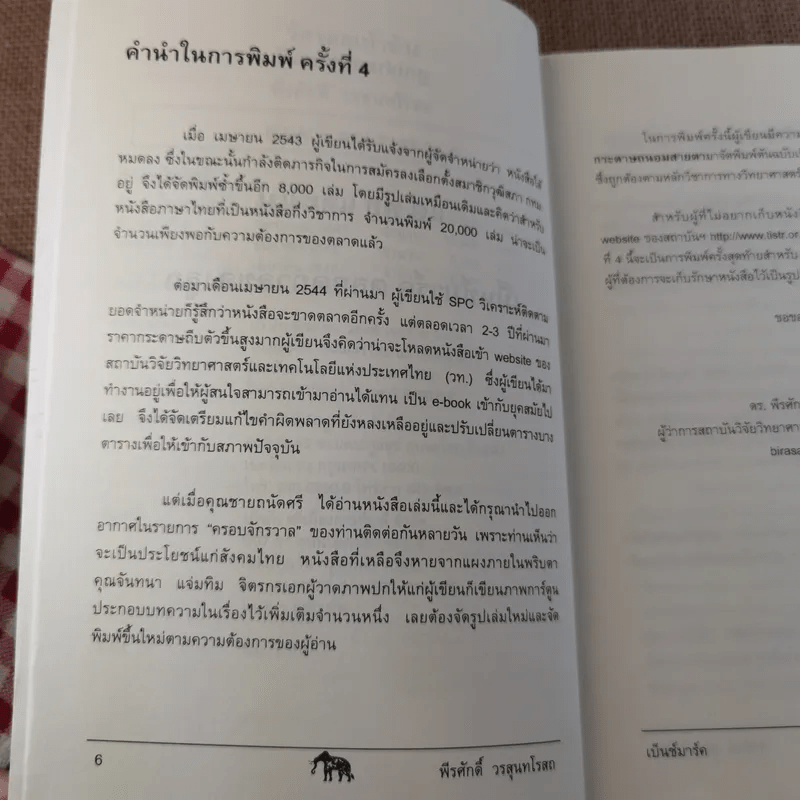 คำนำในการพิมพ์ ครั้งที่ 4
เมื่อ เมษายน 2543 ผู้เขียนได้รับแจ้งจากผู้จัดจำหน่ายว่า หนังสือได้
หมดลง ซึ่งในขณะนั้นกำลังติดภารกิจในการสมัครลงเลือกตั้งสมาชิกวุฒิสภา กทม
อยู่ จึงได้จัดพิมพ์ซ้ำขึ้นอีก 8,000 เล่ม โดยมีรูปเล่มเหมือนเดิมและคิดว่าสำหรับ
หนังสือภาษาไทยที่เป็นหนังสือกึ่งวิชาการ จำนวนพิมพ์ 20,000 เล่ม น่าจะเป็น
จำนวนเพียงพอกับความต้องการของตลาดแล้ว
ต่อมาเดือนเมษายน 2544 ที่ผ่านมา ผู้เขียนใช้ SPC วิเคราะห์ติดตาม
ยอดจำหน่ายก็รู้สึกว่าหนังสือจะขาดตลาดอีกครั้ง แต่ตลอดเวลา 2-3 ปีที่ผ่านมา
ราคากระดาษถีบตัวขึ้นสูงมากผู้เขียนจึงคิดว่าน่าจะโหลดหนังสือเข้า website ของ
สถาบันวิจัยวิทยาศาสตร์และเทคโนโลยีแห่งประเทศไทย (วท.) ซึ่งผู้เขียนได้มา
ทำงานอยู่เพื่อให้ผู้สนใจสามารถเข้ามาอ่านได้แทน เป็น e-book เข้ากับยุคสมัยไป
เลย จึงได้จัดเตรียมแก้ไขคำผิดพลาดที่ยังหลงเหลืออยู่และปรับเปลี่ยนตารางบาง
ตารางเพื่อให้เข้ากับสภาพปัจจุบัน
แต่เมื่อคุณชายถนัดศรี ได้อ่านหนังสือเล่มนี้และได้กรุณานำไปออก
อากาศในรายการ "ครอบจักรวาล" ของท่านติดต่อกันหลายวัน เพราะท่านเห็นว่า
จะเป็นประโยชน์แก่สังคมไทย หนังสือที่เหลือจึงหายจากแผงภายในพริบตา
คุณจันทนา แจ่มทิม จิตรกรเอกผู้วาดภาพปกให้แก่ผู้เขียนก็เขียนภาพการ์ตูน
ประกอบบทความในเรื่องไว้เพิ่มเติมจำนวนหนึ่ง เลยต้องจัดรูปเล่มใหม่และจัด
พิมพ์ขึ้นใหม่ตามความต้องการของผู้อ่าน
6 พีรศักดิ์ วรสุนทโรสถ
ในการพิมพ์ครั้งนี้ผู้เขียนมีความ
กระดาษถนอมสายตามาจัดพิมพ์ต้นฉบับ
ซึ่งถูกต้องตามหลักวิชาการทางวิทยาศาสตร์
สำหรับผู้ที่ไม่อยากเก็บหนัง
website ของสถาบันฯ http://www.tistr.or
ที่ 4 นี้จะเป็นการพิมพ์ครั้งสุดท้ายสำหรับ
ผู้ที่ต้องการจะเก็บรักษาหนังสือไว้เป็นรูป
ขอขอ
ดร. พีรศัก
ผู้ว่าการสถาบันวิจัยวิทยาศา
birasa
เบ็นช์มาร์ค